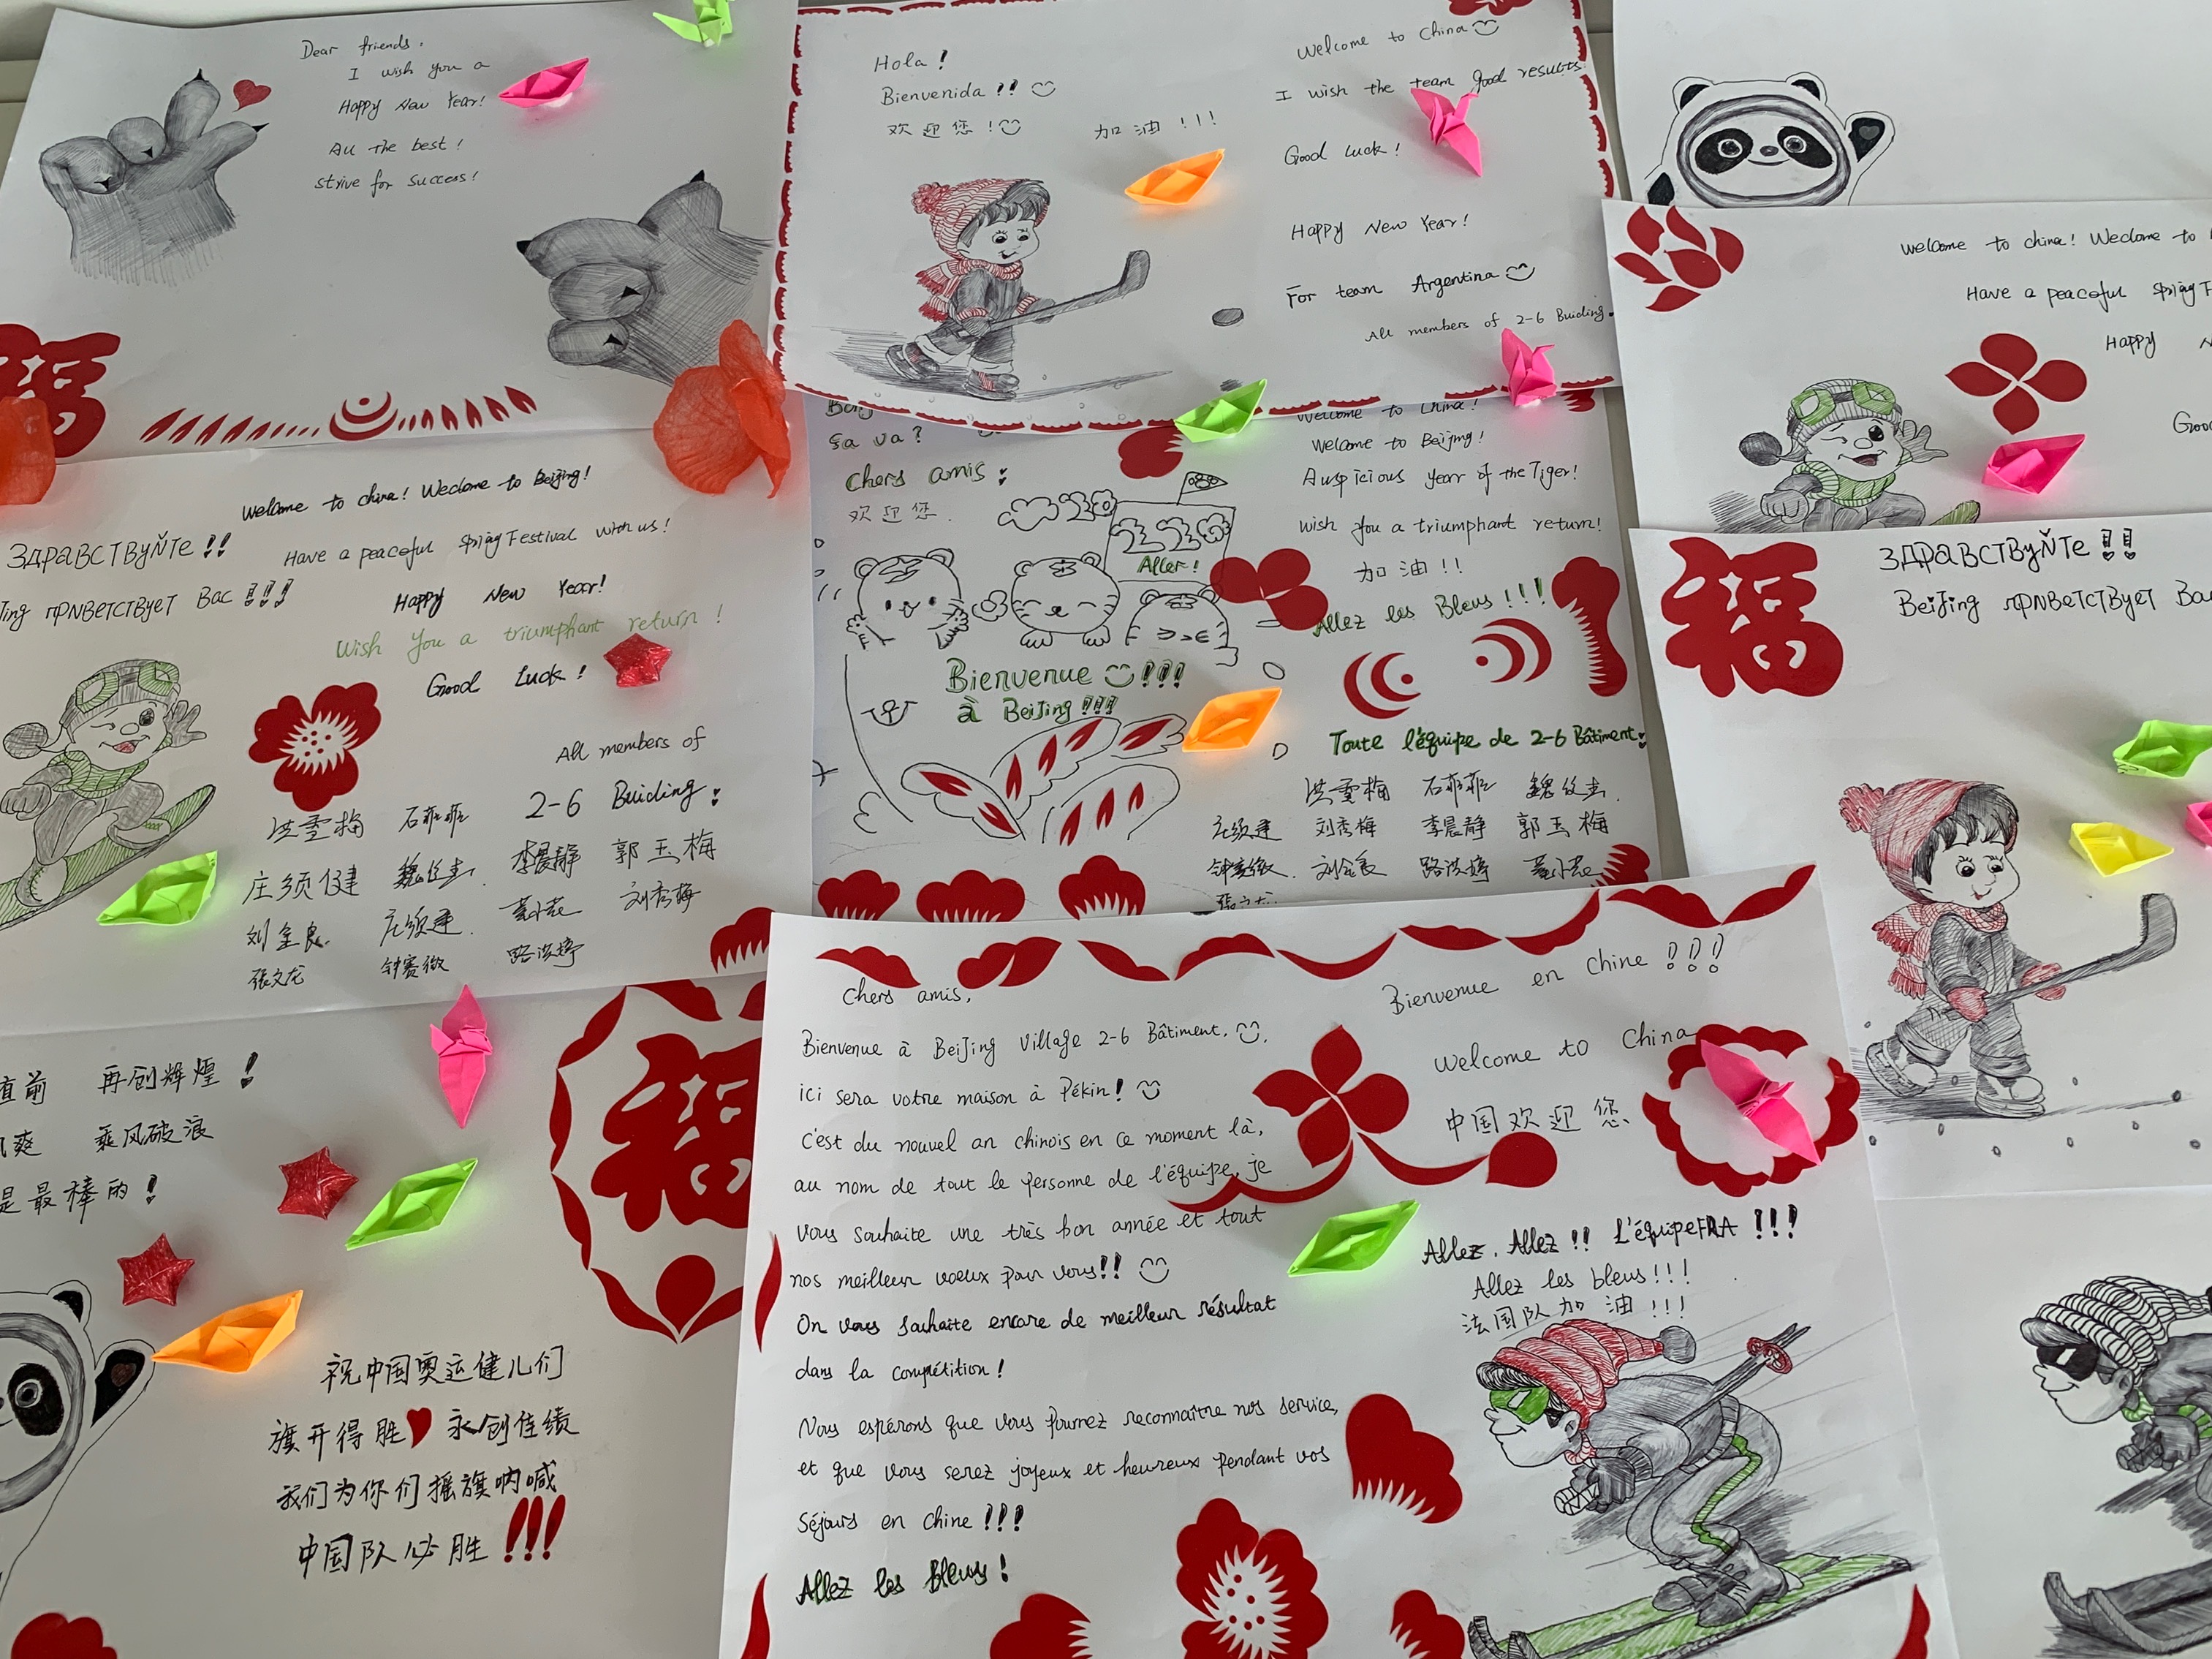 Dear friends,
I wish you a
Happy New Year!
All the best!
strive for success!
福
Hola!
Bienvenida!!
欢迎您!
加油!!!
Welcome to China
I wish the team good results
Good Luck!
Happy New Year!
For team Argentina
All members of 2-6 Buiding.
Welcome to china! Weclome to
Have a peaceful Spring
Happy
Good
welcome to china! Weclome to Beijing!
ЗДРАВСТВуЙТе!!
Have a peaceful Spring Festival with us!
ПРИВеТСТВуеТ Вас!!!
Happy New Year!
Wish You a triumphant return!
Good Luck!
All members of
2-6 Buiding:
洪雪梅 石菲菲
庄须健 李晨静 郭玉梅
刘金良 刘秀梅
張文龙 钟赛薇 路洪婷
ça va?
Chers amis:
欢迎您.
Allez!
Bienvenue!!!
à BeiJing!!!
Welcome to China!
Welcome to Beijing!
Auspicious year of the Tiger!
wish you a triumphant return!
加油!!
Allez les Bleus!!!
Toute l'équipe de 2-6 Bâtiment:
洪雪梅 石菲菲
刘秀梅 李晨静 郭玉梅
钟赛薇. 刘金良 路洪婷
福
ЗДРАВСТВуЙТе!!
BeiJing ПРИВеТСТВуеТ
直前 再创辉煌!
爽 乘风破浪
是最棒的!
福
祝中国奥运健儿们
旗开得胜 永创佳绩
我们为你们摇旗呐喊
中国队必胜!!!
Chers amis,
Bienvenue à BeiJing Village 2-6 Bâtiment.
ici sera votre maison à Pékin!
c'est du nouvel an chinois en ce moment là,
au nom de tout le personne de l'équipe, je
vous souhaite une très bon année et tout
nos meilleur voeux pour vous!!
On vous souhaite encore de meilleur résultat
dans la compétition!
Nous espérons que vous pourrez reconnaître nos service,
et que vous serez joyeux et heureux pendant vos
Séjours en chine!!!
Allez les Bleus!
Bienvenue en chine!!!
Welcome to China
中国欢迎您
Allez, Allez!! L'équipe FRA!!!
Allez les bleus!!!
法国队加油!!!